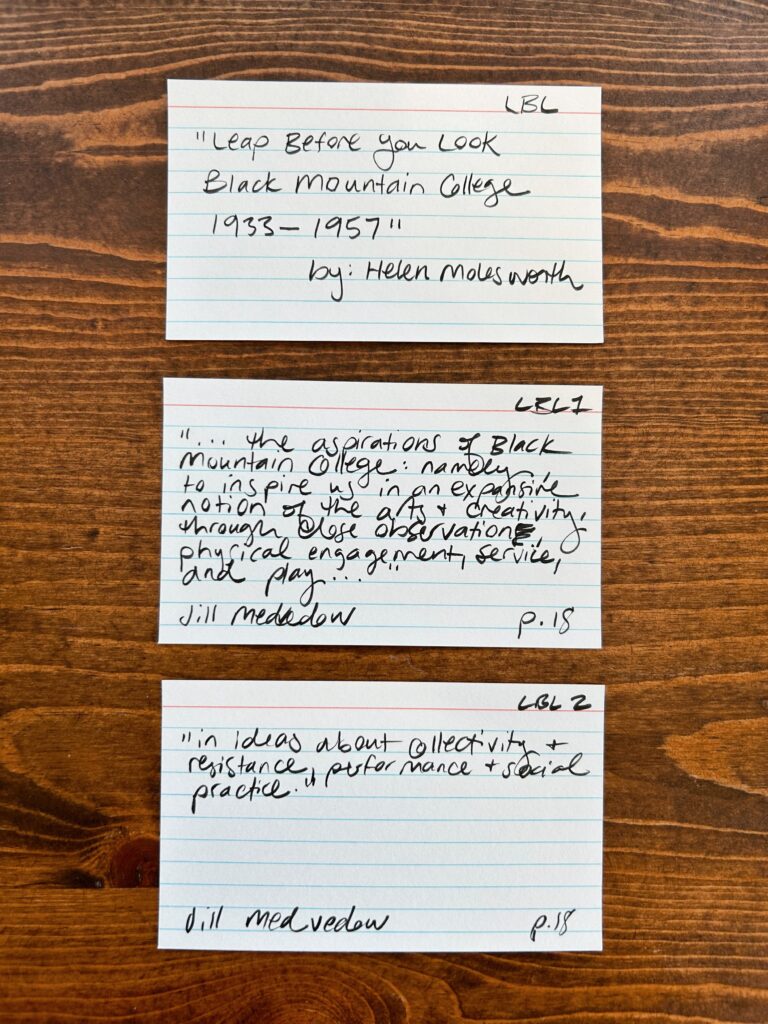 LBL
"Leap Before you Look
Black Mountain College
1933 – 1957"
by: Helen Molesworth
LBL1
"... the aspirations of Black
Mountain College: namely,
to inspire us in an expansive
notion of the arts + creativity,
through close observation,
physical engagement, service,
and play..."
Jill Medvedow
p.18
LBL 2
"in ideas about collectivity +
resistance, performance + social
practice."
Jill Medvedow
p.18